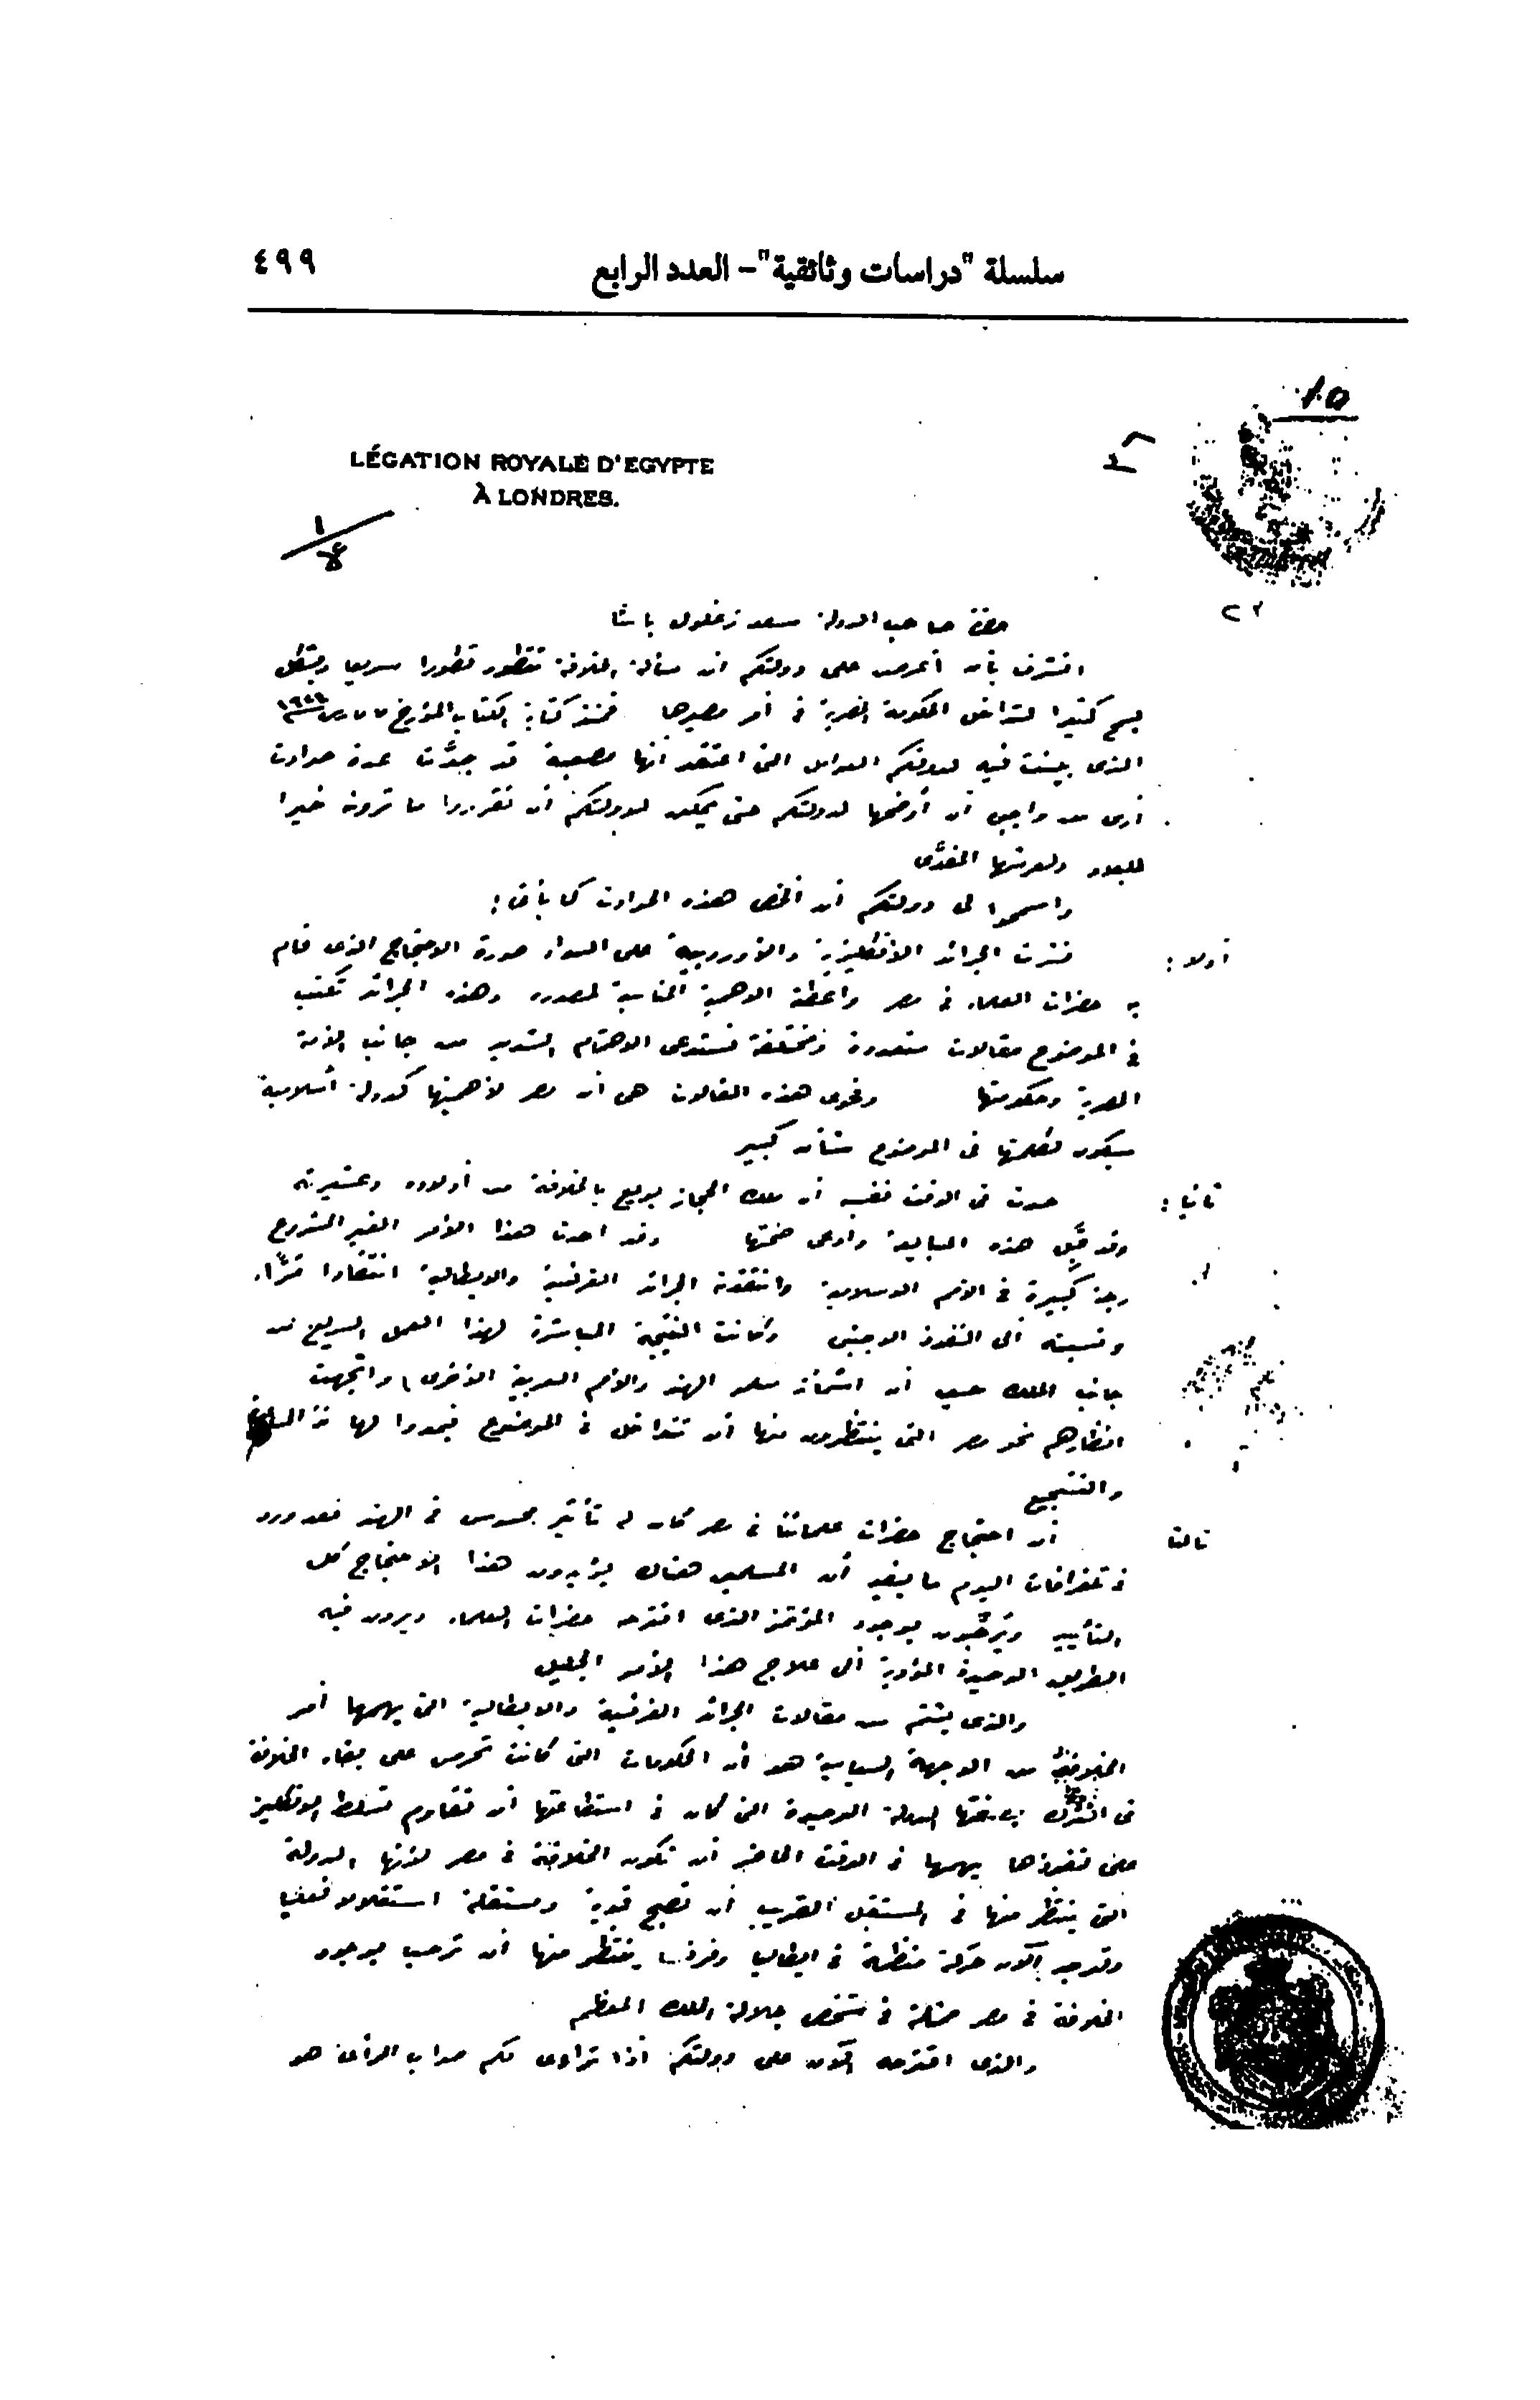 سلسلة "دراسات وثائقية"- العدد الرابع
٤٩٩
١٥
LÉGATION ROYALE D'EGYPTE
À LONDRES.
حضرة صاحب الدولة سعد زغلول باشا
اتشرف بأن أعرض على دولتكم ان مسألة الخلافة تتطور تطورا سريعا
لتداخل الحكومة المصرية فى أمر مصيرها فمنذ كتابة الكتاب المؤرخ ٧ مارس
الذى بينت فيه لدولتكم العوامل التى اعتقد انها قد جدّت عدة حوادث
أرى من واجبى أن أوضحها لدولتكم حتى يمكن لدولتكم أن تقرروا ما ترونه خيرا
للبلاد ولعرشها المفدّى
واسمحوا لى دولتكم أن ألخص هذه الحوادث كما يأتى :
أولا : نشرت الجرائد الأنكليزية والأوروبية على السواء صورة الاحتجاج الذى قام
به حضرات العلماء فى مصر واعطته الاهمية المناسبة لمصدره وهذه الجرائد تكتب
فى الموضوع مقالات متعددة ومختلفة تستدعى الاهتمام الشديد من جانب الأمة
المصرية وحكومتها وفحوى هذه المقالات هى أن مصر لأهميتها كدولة أسلامية
سيكون لكلمتها فى الموضوع شأن كبير
ثانيا : حدث فى الوقت نفسه أن ملك الحجاز بويع بالخلافة من أولاده وعشيرته
وقد قبل هذه المبايعة وادعى صحتها وقد احدث هذا الأمر الغير المشروع
رجة كبيرة فى الأمم الاسلامية وانتقدته الجرائد الفرنسية والايطالية انتقادا مرًّا
ونسبته الى النفوذ الاجنبى وكانت النتيجة المباشرة لهذا العمل السريع من
جانب الملك حسين أن اشمأز مسلمو الهند والأمم العربية الأخرى واتجهت
انظارهم نحو مصر التى ينتظرون منها أن تتداخل فى الموضوع فيمدوا لها يد
والتشجيع
ثالثا أن احتجاج حضرات علمائنا فى مصر كان له تأثير محسوس فى الهند فقد ورد
فى تلغرافات اليوم ما يفيد أن المسلمين هناك يؤيدون هذا الاحتجاج كل
التأييد ويرحّبون بوجود المؤتمر الذى اقترحه حضرات العلماء ويرون فيه
الطريق الوحيدة المؤدية الى علاج هذا الأمر الجليل
والذى يشتم من مقالات الجرائد الفرنسية والايطالية التى يهمها أمر
الخلافة من الوجهة السياسية هو أن الحكومات التى كانت تحرص على بقاء الخلافة
فى الدولة الوحيدة التى كان فى استطاعتها أن تقاوم تسلط الانكليز
على نفوذها يهمها فى الوقت الحاضر أن تكون الخلافة فى مصر لأنها الدولة
التى ينتظر منها فى المستقبل القريب أن تصبح قوية ومستقلة استقلالا فعليا
وتوجد الآن حركة منظمة فى ايطاليا وفرنسا ينتظر منها أن ترحب بوجود
الخلافة فى مصر ممثلة فى شخص جلالة الملك المعظم
والذى اقترحه الآن على دولتكم اذا تراءى لكم صواب الرأى هو